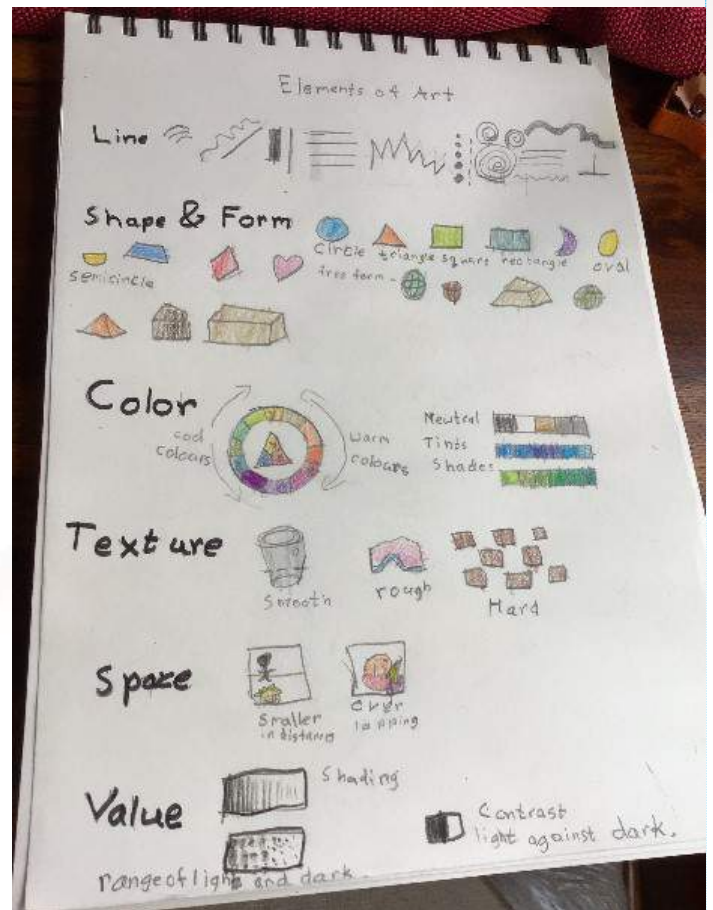 Elements of Art
Line
Shape & Form
Circle triangle square rectangle oval
semicircle
free form -
Color
cool
colours
warm
colours
Neutral
Tints
Shades
Texture
Smooth
rough
Hard
Space
Smaller
in distance
Over
lapping
Value
Shading
Contrast
light against dark.
range of light and dark.